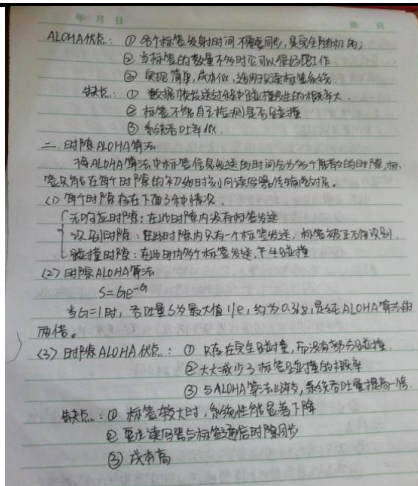 年 月 日
ALOHA优点: ① 各个标签发射时间不需要同步,是完全随机的;
② 当标签的数量不多时它可以很好地工作
③ 实现简单,成本低,适用于只读标签系统
缺点: ① 数据帧发送过程中碰撞发生的概率大
② 标签不能自己检测是否碰撞
③ 系统吞吐率低.
二. 时隙ALOHA算法
将ALOHA算法中标签信息发送的时间分为多个离散的时隙,标
签只能在每个时隙的初始时刻向读写器传输信息.
(1) 每个时隙存在下面3种情况.
无响应时隙:在此时隙内没有标签发送
识别时隙:在此时隙内只有一个标签发送,标签被正确识别.
碰撞时隙:在此时隙内多个标签发送,产生碰撞
(2) 时隙ALOHA算法
S=Ge-G
当G=1时,吞吐量S为最大值1/e,约为0.368,是纯ALOHA算法的
两倍。
(3) 时隙ALOHA优点: ① 只存在完全碰撞,而没有部分碰撞.
② 大大减少了标签碰撞的概率
③ 与ALOHA算法比较,系统吞吐量提高一倍.
缺点: ① 标签较大时,系统性能显著下降
② 要求读写器与标签通信时隙同步
③ 成本高